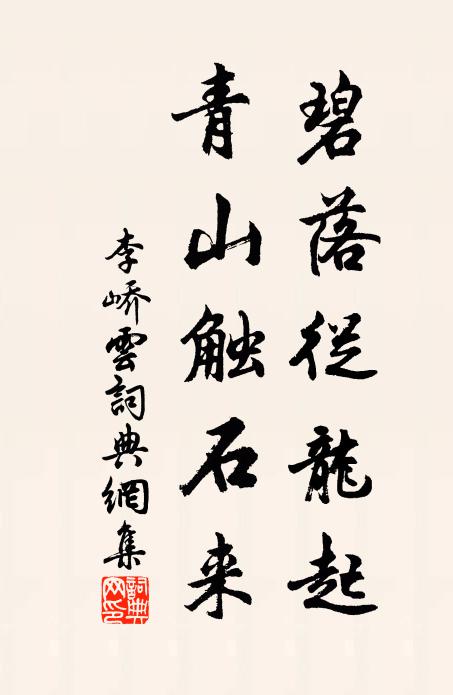 碧落從龍起
青山触石来
李嶠雲詞典網集
詞典
网印